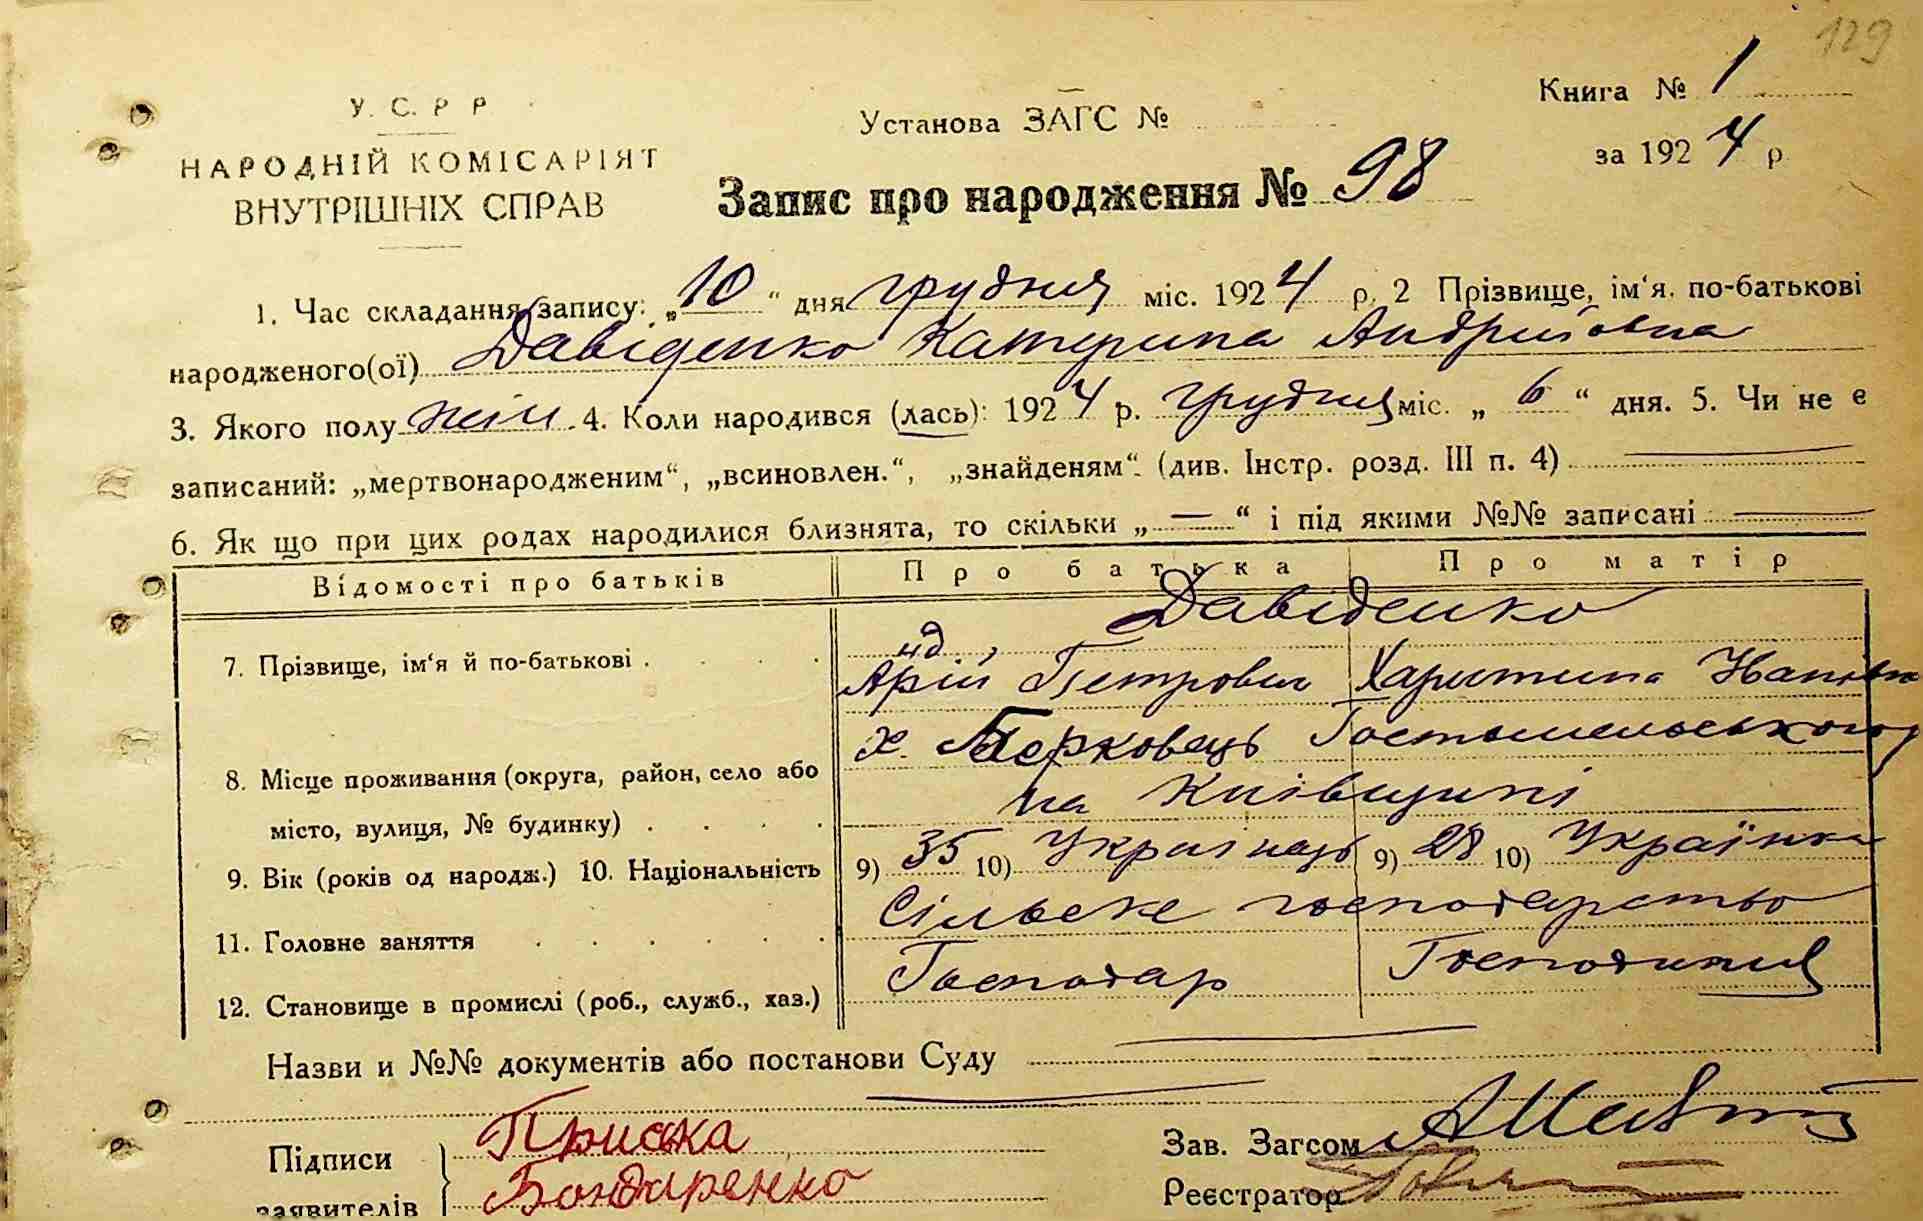 129
У. С. Р Р
НАРОДНІЙ КОМІСАРІЯТ
ВНУТРІШНІХ СПРАВ
Установа ЗАГС №
Запис про народження № 98
Книга № 1
за 1924 р
1. Час складання запису: „10“ дня грудня міс. 1924 р. 2 Прізвище, ім'я. по-батькові
народженого(ої) Давіденко Катерина Андрійовна
3. Якого полу жін. 4. Коли народився (лась): 1924 р. грудня міс. „ 6 “ дня. 5. Чи не є
записаний: „мертвонародженим“, „всиновлен.“, „знайденям“. (див. Інстр. розд. III п. 4)
6. Як що при цих родах народилися близнята, то скільки „ — “ і під якими №№ записані
Відомості про батьків Про батька Про матір
Давіденко
7. Прізвище, ім'я й по-батькові . нд Арій Петрович Харитина
х. Берковець Гостомельського
8. Місце проживання (округа, район, село або
на Київщині
місто, вулиця, № будинку)
9. Вік (років од народж.) 10. Національність 9) 35 10) Українець 9) 28 10) Українка
11. Головне заняття Сільске господарство
12. Становище в промислі (роб., служб., хаз.) Господар Господиня
Назви и №№ документів або постанови Суду
Підписи Приська Зав. Загсом
заявителів Бондаренко Реєстратор